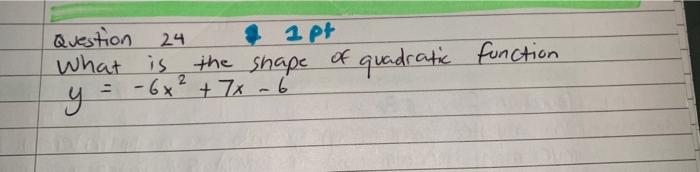 Question 24 1 pt
What is the shape of quadratic function
y = -6x² + 7x - 6